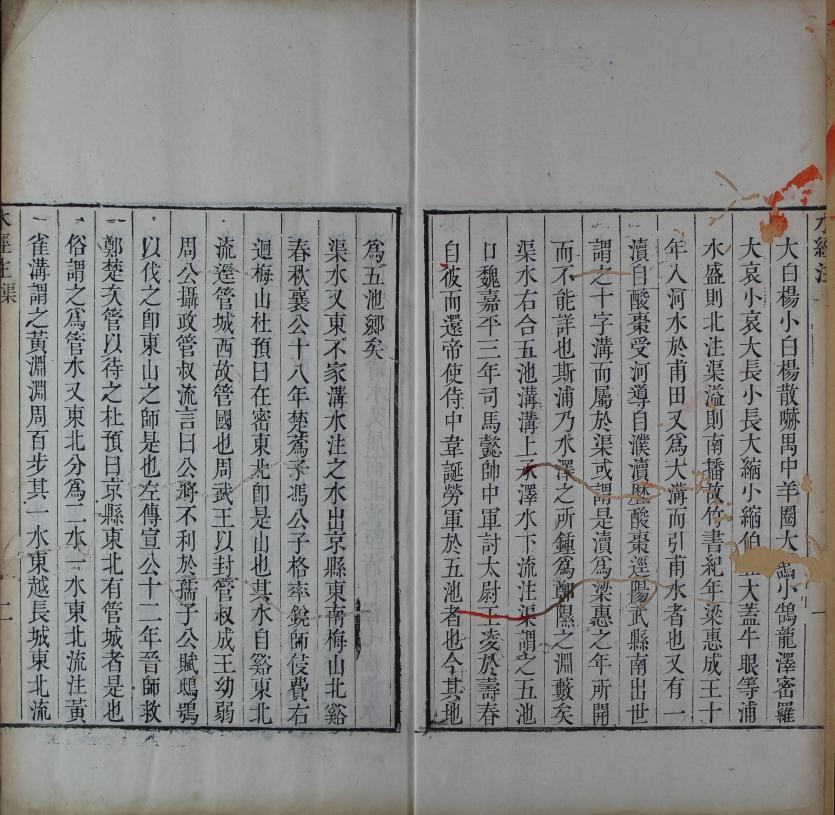 水經注
大白楊小白楊散嚇禺中羊圈大鵠小鵠龍澤密羅
大哀小哀大長小長大縮小縮伯丘大蓋牛眼等浦
水盛則北注渠溢則南播故竹書紀年梁惠成王十
年入河水於甫田又爲大溝而引甫水者也又有一
瀆自酸棗受河導自濮瀆歷酸棗逕陽武縣南出世
謂之十字溝而屬於渠或謂是瀆爲梁惠之年所開
而不能詳也斯浦乃水澤之所鍾爲鄭隰之淵藪矣
渠水右合五池溝溝上承澤水下流注渠謂之五池
口魏嘉平三年司馬懿帥中軍討太尉王凌於壽春
自彼而還帝使侍中韋誕勞軍於五池者也今其地
一
爲五池鄉矣
渠水又東不家溝水注之水出京縣東南梅山北谿
春秋襄公十八年楚蒍子馮公子格率銳師侵費右
迴梅山杜預曰在密東北卽是山也其水自谿東北
流逕管城西故管國也周武王以封管叔成王幼弱
周公攝政管叔流言曰公將不利於孺子公賦鴟鴞
以伐之卽東山之師是也左傳宣公十二年晉師救
鄭楚次管以待之杜預曰京縣東北有管城者是也
俗謂之爲管水又東北分爲二水一水東北流注黃
雀溝謂之黃淵淵周百步其一水東越長城東北流
水經注渠
二